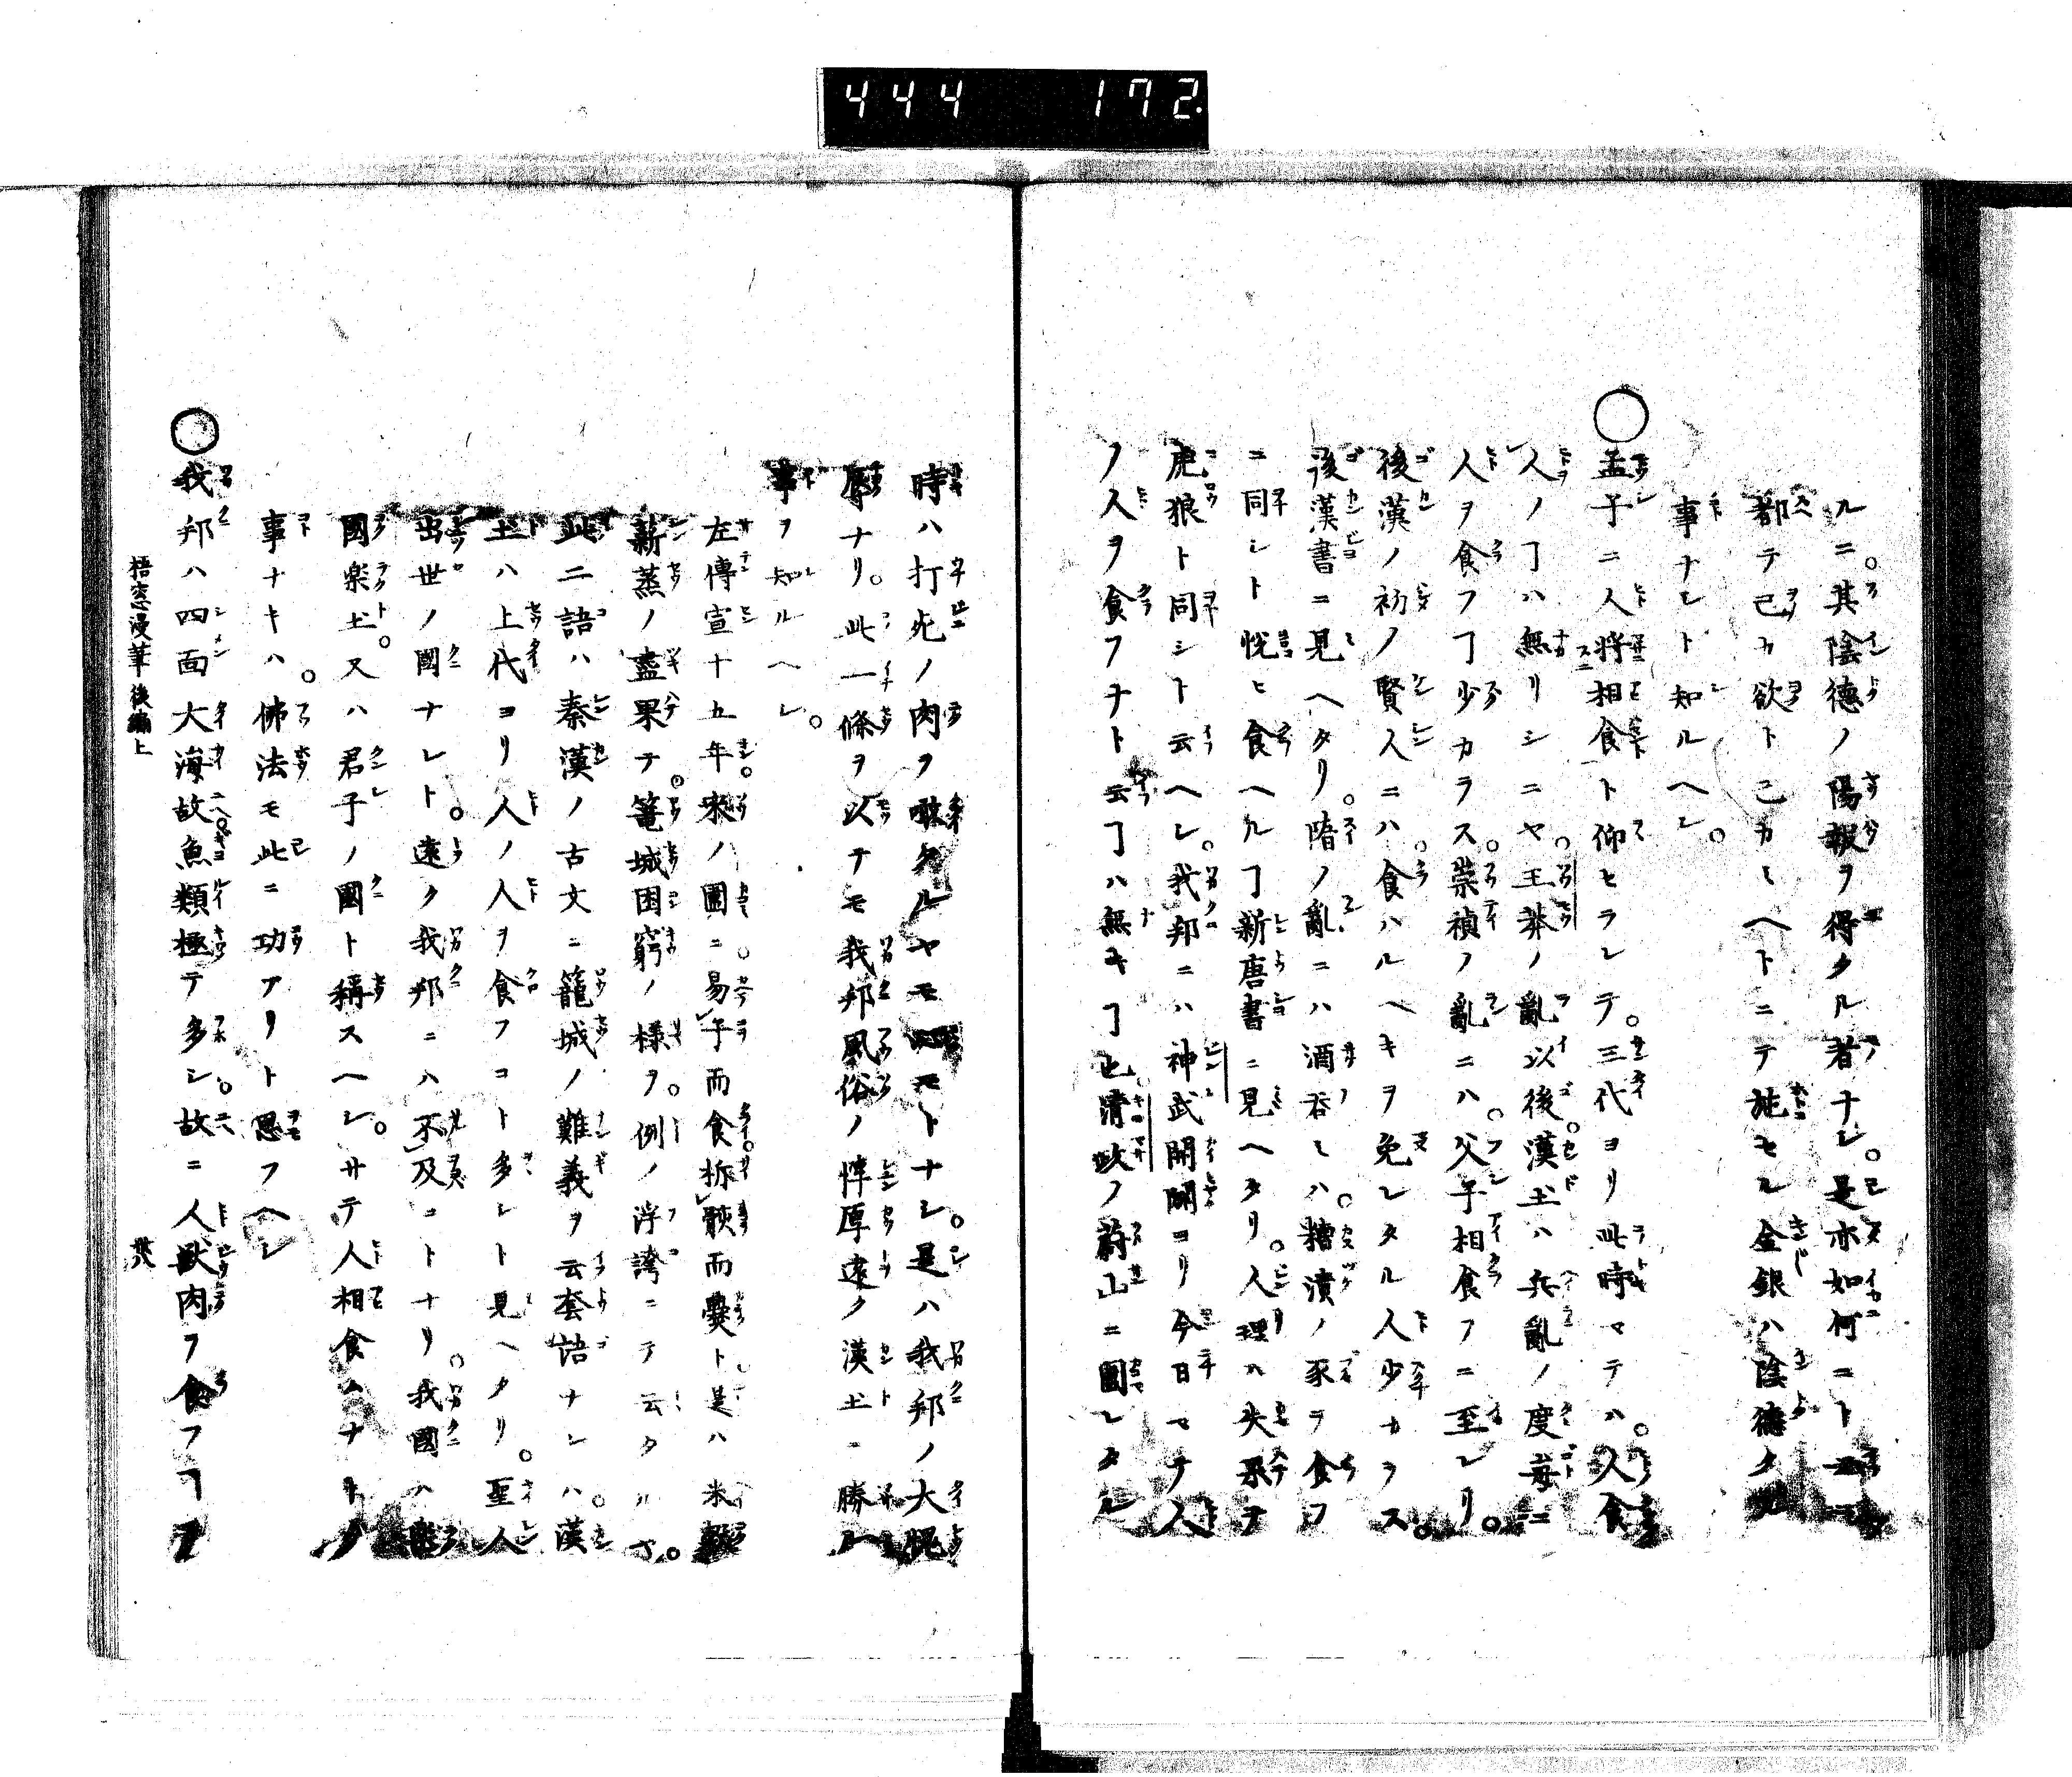 444 172
ルニ。其陰徳ノ陽報ヲ得タル者ナシ。是亦如何ニト云ニ
都テ己カ欲ト己カミヘトニテ施セル金銀ハ陰徳タ
事ナシト知ルヘシ。
○孟子ニ人將相食ト仰セラレテ。三代ヨリ此時マテハ。人食
人ノヿハ無リシニヤ。王莽ノ亂以後。漢土ハ兵亂ノ度毎ニ
人ヲ食フヿ少カラス。崇禎ノ亂ニハ。父子相食フニ至レリ。
後漢ノ初ノ賢人ニハ。食ハルヘキヲ免レタル人少ナカラス。
後漢書ニ見ヘタリ。隋ノ亂ニハ酒呑ミハ。糟漬ノ豕ヲ食フ
ニ同シト悦ヒ食ヘルヿ新唐書ニ見ヘタリ。人理ハ失果テ
虎狼ト同シト云ヘシ。我邦ニハ神武開闢ヨリ今日マテ人
ノ人ヲ食フナト云ヿハ無キヿ也。清政ノ蔚山ニ圍レタル
時ハ打死ノ肉ヲ噉タルヤモ モトナシ。是ハ我邦ノ大愧
辱ナリ。此一條ヲ以テモ我邦風俗ノ惇厚遠ク漢土ニ勝ル
事ヲ知ルヘシ。
左傳宣十五年宋ノ圍ニ。易子而食。析骸而爨ト。是ハ米穀
薪蒸ノ盡果テ。篭城困窮ノ様ヲ。例ノ浮誇ニテ云タルナ。
此二語ハ秦漢ノ古文ニ籠城ノ難義ヲ云套語ナレハ。漢
土ハ上代ヨリ人ノ人ヲ食フコト多シト見ヘタリ。聖人
出世ノ國ナレト。遠ク我邦ニハ不及コトナリ。我國ハ樂
國楽土。又ハ君子ノ國ト稱スヘシ。サテ人相食ムナトノ
事ナキハ。佛法モ此ニ功アリト思フヘシ
○我邦ハ四面大海故魚類極テ多シ。故ニ人獸肉ヲ食フヿヲ
梧窓漫筆後編上
廿八